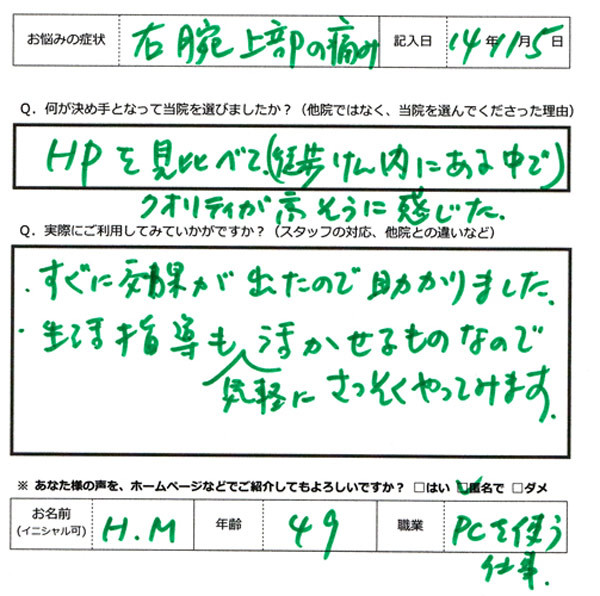 お悩みの症状 右腕上部の痛み 記入日 14年11月5日
Q．何が決め手となって当院を選びましたか？（他院ではなく、当院を選んでくださった理由）
HPを見比べて(徒歩けん内にある中で)
クオリティが高そうに感じた.
Q．実際にご利用してみていかがですか？（スタッフの対応、他院との違いなど）
・すぐに効果が出たので助かりました.
・生活指導も活かせるものなので
気軽に さっそくやってみます.
※ あなた様の声を、ホームページなどでご紹介してもよろしいですか？ □はい ☑匿名で □ダメ
お名前 H.M 年齢 49 職業 PCを使う
(イニシャル可) 仕事.